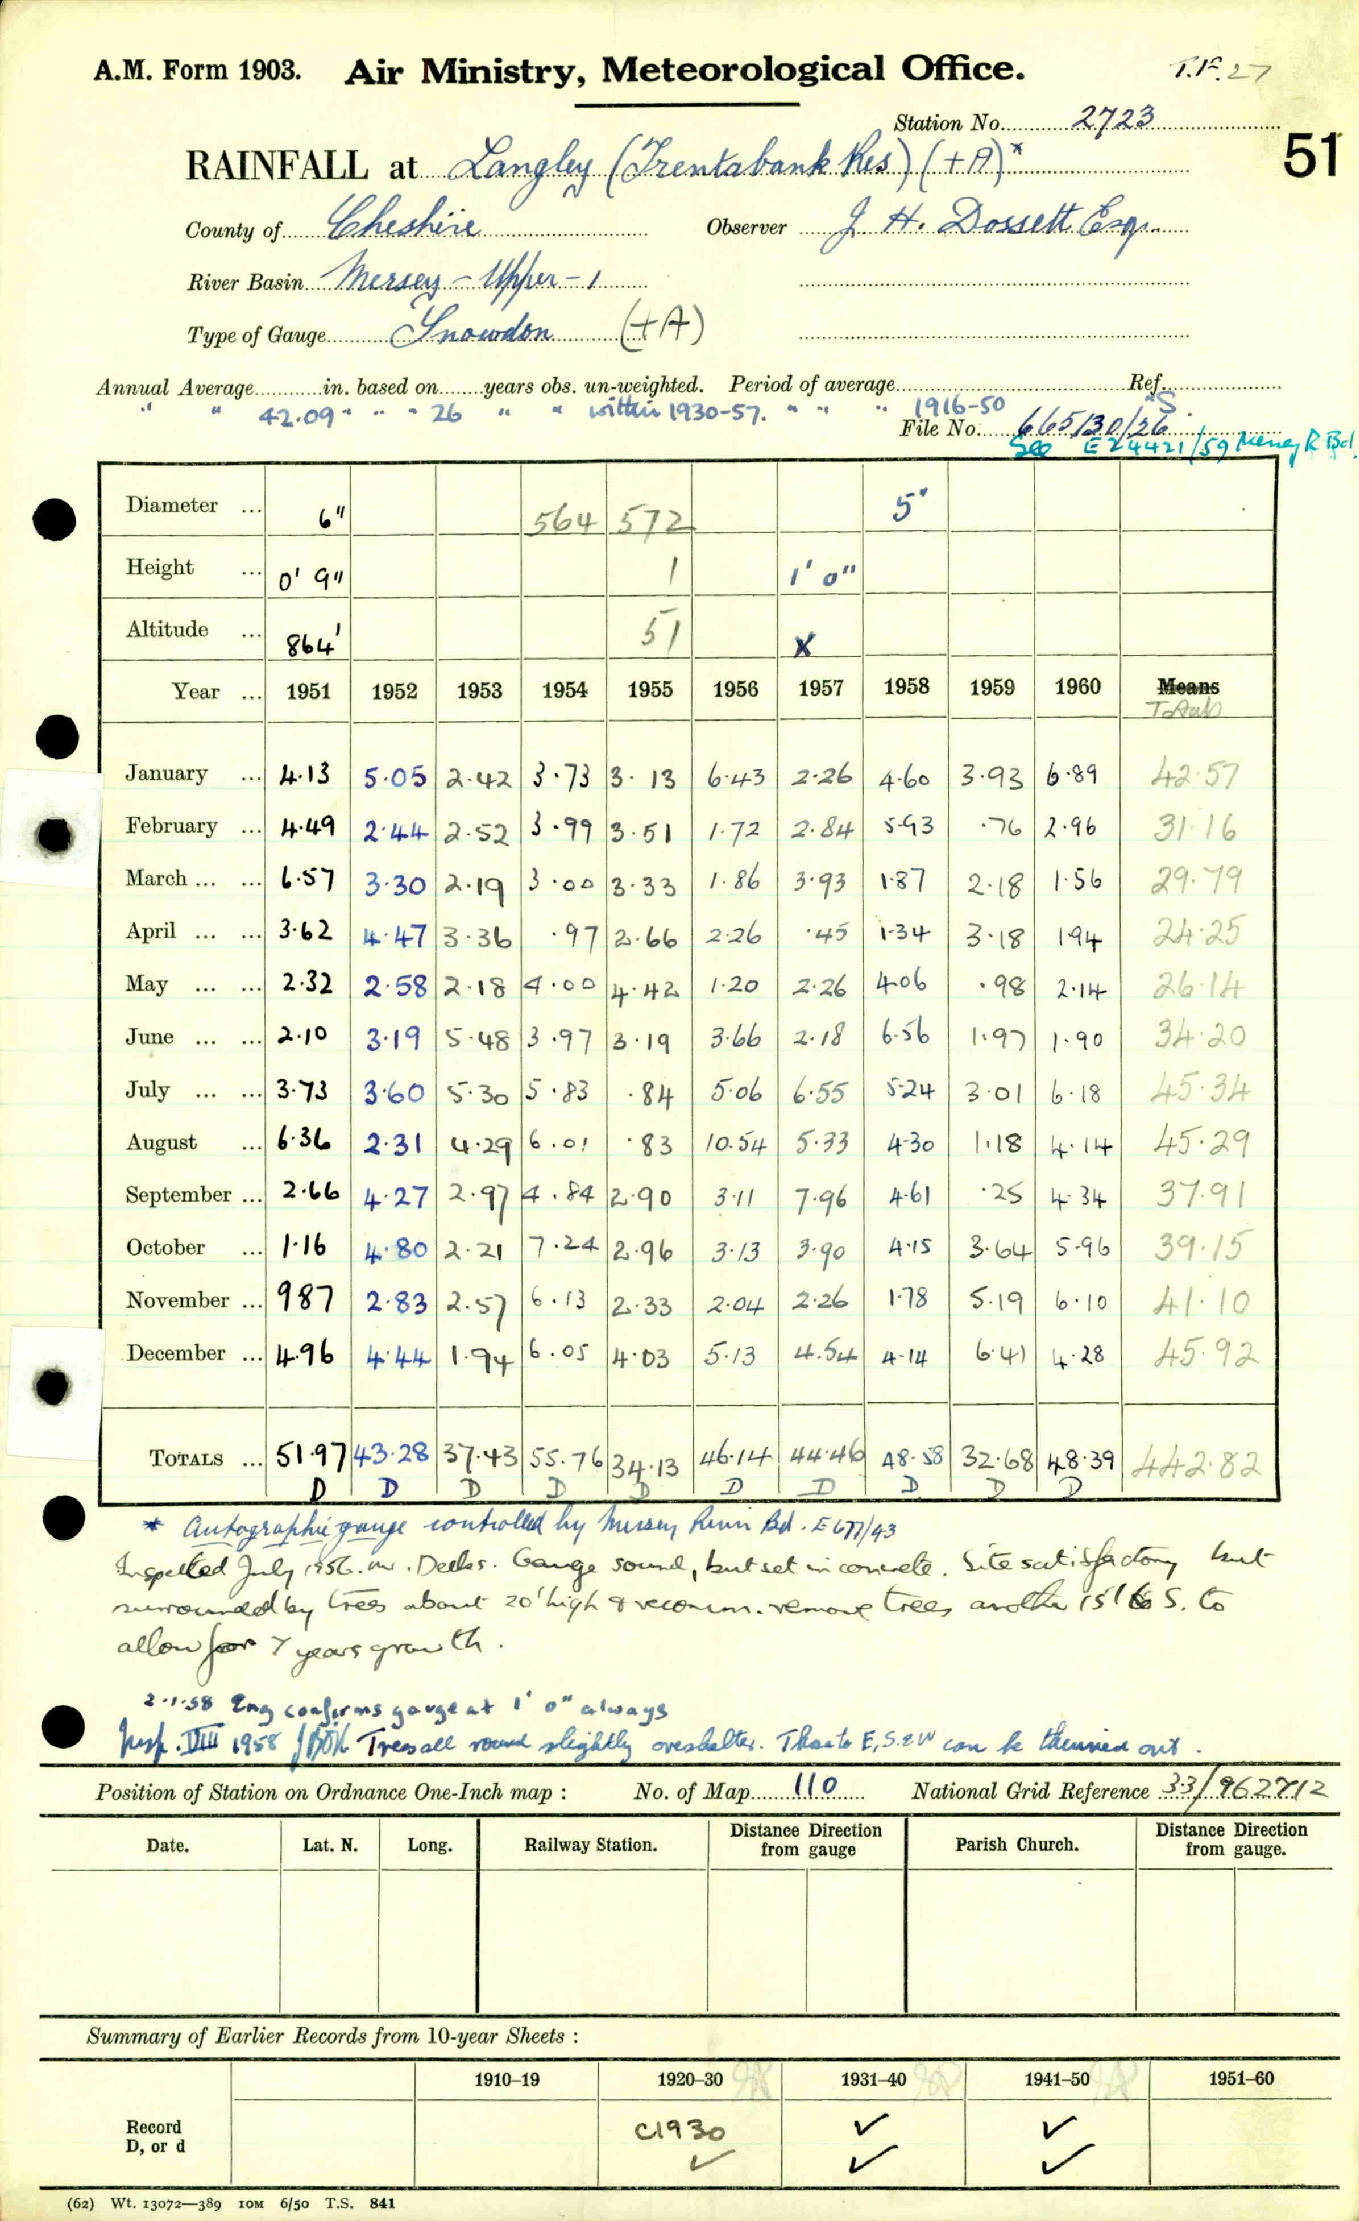 A.M. Form 1903. Air Ministry, Meteorological Office. T.P. 27
Station No. 2723
51
RAINFALL at Langley (Trentabank Res) (+A)*
County of Cheshire Observer J H. Dossett Esq.
River Basin Mersey - Upper - 1
Type of Gauge Snowdon (+A)
Annual Average in. based on years obs. un-weighted. Period of average Ref.
" " 42.09 " " " 26 " " within 1930-57. " " " 1916-50 "S.
File No. 665130/26
See E24421/59 Mersey R Bd.
Diameter ... 6" 564 572 5"
Height ... 0' 9" 1 1' 0"
Altitude ... 864' 51 X
Year ... 1951 1952 1953 1954 1955 1956 1957 1958 1959 1960 Means
Totals
January ... 4.13 5.05 2.42 3.73 3.13 6.43 2.26 4.60 3.93 6.89 42.57
February ... 4.49 2.44 2.52 3.99 3.51 1.72 2.84 5.93 .76 2.96 31.16
March ... ... 6.57 3.30 2.19 3.00 3.33 1.86 3.93 1.87 2.18 1.56 29.79
April ... ... 3.62 4.47 3.36 .97 2.66 2.26 .45 1.34 3.18 194 24.25
May ... ... 2.32 2.58 2.18 4.00 4.42 1.20 2.26 4.06 .98 2.14 26.14
June ... ... 2.10 3.19 5.48 3.97 3.19 3.66 2.18 6.56 1.97 1.90 34.20
July ... ... 3.73 3.60 5.30 5.83 .84 5.06 6.55 5.24 3.01 6.18 45.34
August ... 6.36 2.31 4.29 6.01 .83 10.54 5.33 4.30 1.18 4.14 45.29
September ... 2.66 4.27 2.97 4.84 2.90 3.11 7.96 4.61 .25 4.34 37.91
October ... 1.16 4.80 2.21 7.24 2.96 3.13 3.90 4.15 3.64 5.96 39.15
November ... 987 2.83 2.57 6.13 2.33 2.04 2.26 1.78 5.19 6.10 41.10
December ... 4.96 4.44 1.94 6.05 4.03 5.13 4.54 4.14 6.41 4.28 45.92
TOTALS ... 51.97 43.28 37.43 55.76 34.13 46.14 44.46 48.58 32.68 48.39 442.82
D D D D D D D D D D
* Autographic gauge controlled by Mersey River Bd. E677/43
Inspected July 1956. Mr. Deeks. Gauge sound, but set in concrete. Site satisfactory but
surrounded by trees about 20' high & recomm. remove trees another 15' to S. to
allow for 7 years growth.
2.1.58 Eng confirms gauge at 1' 0" always
Insp. VIII 1958 Trees all round slightly overshelter. Those to E, S & W can be thinned out.
Position of Station on Ordnance One-Inch map : No. of Map 110 National Grid Reference 33/962712
Date. Lat. N. Long. Railway Station. Distance Direction from gauge Parish Church. Distance Direction from gauge.
Summary of Earlier Records from 10-year Sheets :
1910-19 1920-30 1931-40 1941-50 1951-60
Record C1930 ✓ ✓
D, or d ✓ ✓ ✓
(62) Wt. 13072—389 10M 6/50 T.S. 841